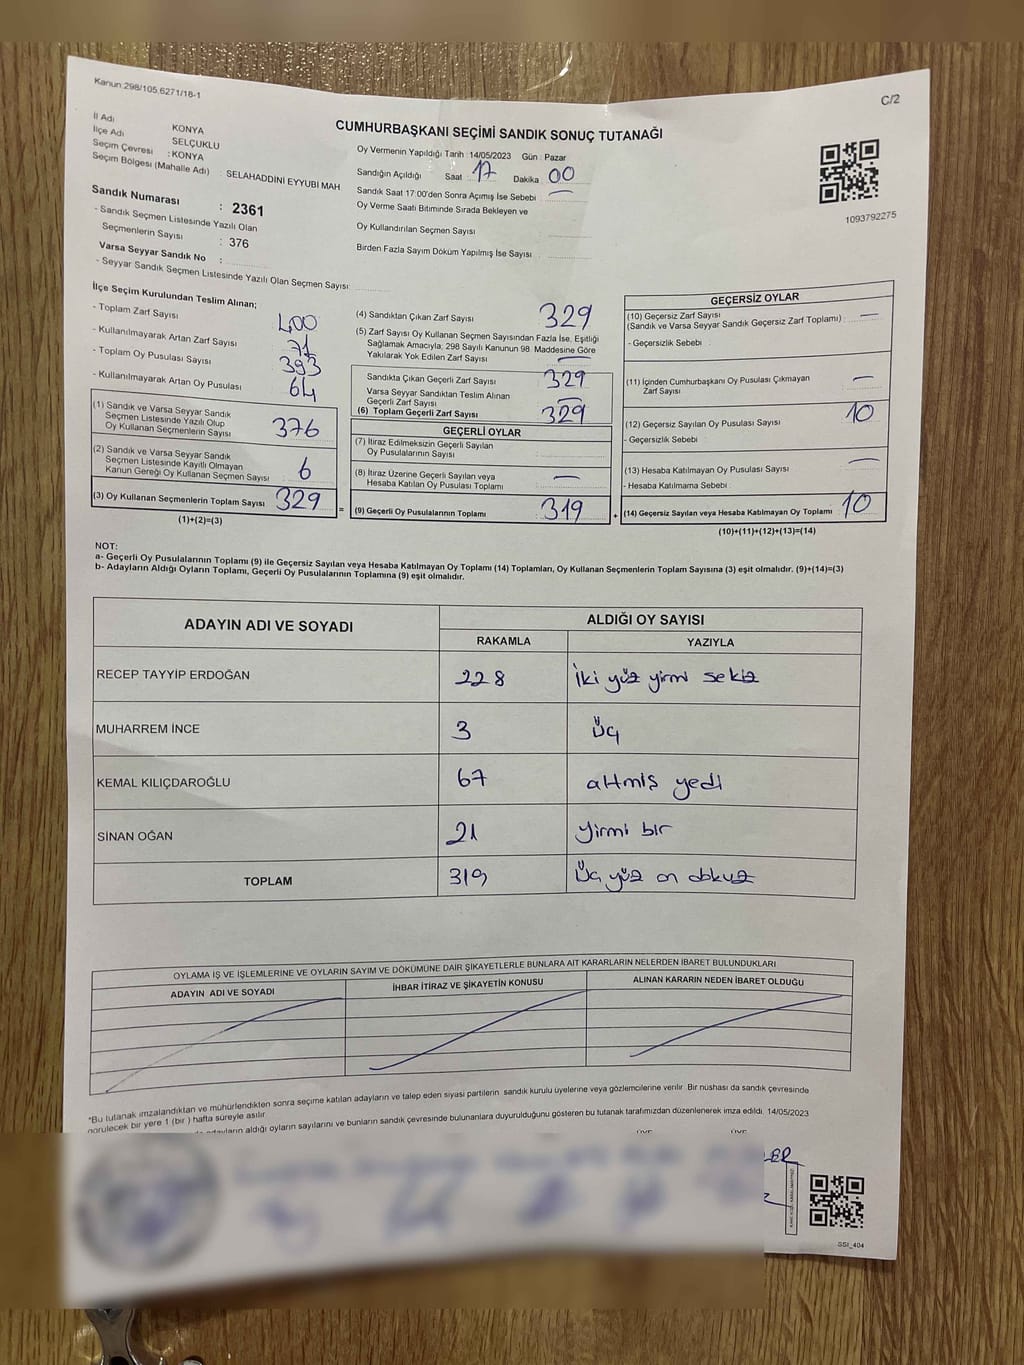 Kanun:298/105,6271/18-1
C/2
CUMHURBAŞKANI SEÇİMİ SANDIK SONUÇ TUTANAĞI
İl Adı : KONYA
İlçe Adı : SELÇUKLU
Seçim Çevresi : KONYA
Seçim Bölgesi (Mahalle Adı) : SELAHADDİNİ EYYUBİ MAH
Sandık Numarası : 2361
- Sandık Seçmen Listesinde Yazılı Olan
Seçmenlerin Sayısı : 376
Varsa Seyyar Sandık No :
- Seyyar Sandık Seçmen Listesinde Yazılı Olan Seçmen Sayısı:
Oy Vermenin Yapıldığı Tarih : 14/05/2023 Gün : Pazar
Sandığın Açıldığı Saat : 17 Dakika : 00
Sandık Saat 17:00'den Sonra Açımış İse Sebebi : —
Oy Verme Saati Bitiminde Sırada Bekleyen ve
Oy Kullandırılan Seçmen Sayısı
Birden Fazla Sayım Döküm Yapılmış İse Sayısı :
1093792275
İlçe Seçim Kurulundan Teslim Alınan;
- Toplam Zarf Sayısı 400
- Kullanılmayarak Artan Zarf Sayısı 71
- Toplam Oy Pusulası Sayısı 393
- Kullanılmayarak Artan Oy Pusulası 64
(1) Sandık ve Varsa Seyyar Sandık
Seçmen Listesinde Yazılı Olup
Oy Kullanan Seçmenlerin Sayısı 376
(2) Sandık ve Varsa Seyyar Sandık
Seçmen Listesinde Kayıtlı Olmayan
Kanun Gereği Oy Kullanan Seçmen Sayısı 6
(3) Oy Kullanan Seçmenlerin Toplam Sayısı 329
(1)+(2)=(3)
(4) Sandıktan Çıkan Zarf Sayısı 329
(5) Zarf Sayısı Oy Kullanan Seçmen Sayısından Fazla İse, Eşitliği
Sağlamak Amacıyla; 298 Sayılı Kanunun 98. Maddesine Göre
Yakılarak Yok Edilen Zarf Sayısı —
Sandıkta Çıkan Geçerli Zarf Sayısı 329
Varsa Seyyar Sandıktan Teslim Alınan
Geçerli Zarf Sayısı —
(6) Toplam Geçerli Zarf Sayısı 329
GEÇERLİ OYLAR
(7) İtiraz Edilmeksizin Geçerli Sayılan
Oy Pusulalarının Sayısı
(8) İtiraz Üzerine Geçerli Sayılan veya
Hesaba Katılan Oy Pusulası Toplamı —
= (9) Geçerli Oy Pusulalarının Toplamı 319
GEÇERSİZ OYLAR
(10) Geçersiz Zarf Sayısı
(Sandık ve Varsa Seyyar Sandık Geçersiz Zarf Toplamı) : —
- Geçersizlik Sebebi :
(11) İçinden Cumhurbaşkanı Oy Pusulası Çıkmayan
Zarf Sayısı —
(12) Geçersiz Sayılan Oy Pusulası Sayısı 10
- Geçersizlik Sebebi :
(13) Hesaba Katılmayan Oy Pusulası Sayısı —
- Hesaba Katılmama Sebebi :
+ (14) Geçersiz Sayılan veya Hesaba Katılmayan Oy Toplamı 10
(10)+(11)+(12)+(13)=(14)
NOT:
a- Geçerli Oy Pusulalarının Toplamı (9) ile Geçersiz Sayılan veya Hesaba Katılmayan Oy Toplamı (14) Toplamları, Oy Kullanan Seçmenlerin Toplam Sayısına (3) eşit olmalıdır. (9)+(14)=(3)
b- Adayların Aldığı Oyların Toplamı, Geçerli Oy Pusulalarının Toplamına (9) eşit olmalıdır.
ADAYIN ADI VE SOYADI
ALDIĞI OY SAYISI
RAKAMLA YAZIYLA
RECEP TAYYİP ERDOĞAN 228 İki yüz yirmi sekiz
MUHARREM İNCE 3 Üç
KEMAL KILIÇDAROĞLU 67 altmış yedi
SİNAN OĞAN 21 Yirmi bir
TOPLAM 319 Üç yüz on dokuz
OYLAMA İŞ VE İŞLEMLERİNE VE OYLARIN SAYIM VE DÖKÜMÜNE DAİR ŞİKAYETLERLE BUNLARA AİT KARARLARIN NELERDEN İBARET BULUNDUKLARI
ADAYIN ADI VE SOYADI İHBAR İTİRAZ VE ŞİKAYETİN KONUSU ALINAN KARARIN NEDEN İBARET OLDUĞU
*Bu tutanak imzalandıktan ve mühürlendikten sonra seçime katılan adayların ve talep eden siyasi partilerin sandık kurulu üyelerine veya gözlemcilerine verilir. Bir nüshası da sandık çevresinde
görülecek bir yere 1 (bir) hafta süreyle asılır.
adayların aldığı oyların sayılarını ve bunların sandık çevresinde bulunanlara duyurulduğunu gösteren bu tutanak tarafımızdan düzenlenerek imza edildi. 14/05/2023
SSI_404